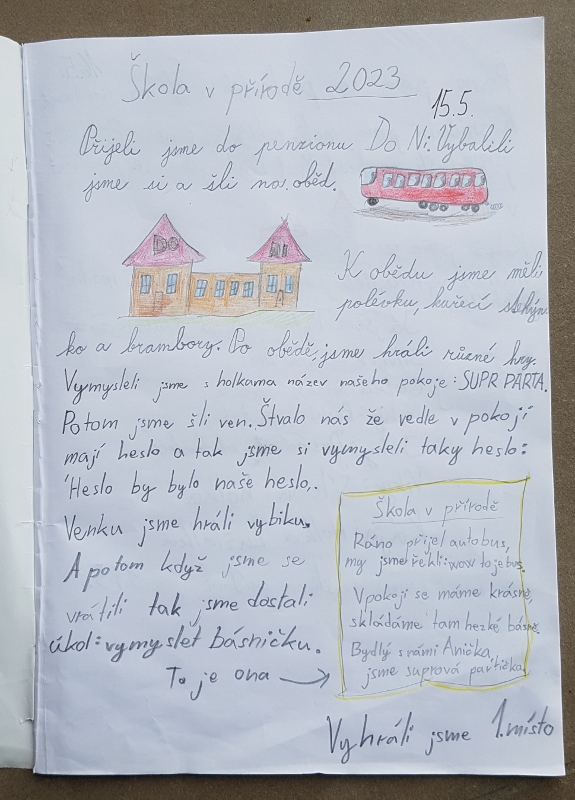 Škola v přírodě 2023
15.5.
Přijeli jsme do penzionu Do Ni. Vybalili
jsme si a šli na oběd.
DO
NI
K obědu jsme měli
polévku, kařecí stehýn
ko a brambory. Po obědě, jsme hráli různé hry.
Vymysleli jsme s holkama název našeho pokoje: SUPR PARTA.
Potom jsme šli ven. Štvalo nás že vedle v pokoji
mají heslo a tak jsme si vymysleli taky heslo:
'Heslo by bylo naše heslo,.
Venku jsme hráli vybiku.
A potom když jsme se
vrátili tak jsme dostali
úkol: vymyslet básničku.
To je ona →
Škola v přírodě
Ráno přijel autobus,
my jsme řekli: wow to je bus.
V pokoji se máme krásně,
skládáme tam hezké básně.
Bydlý s námi Anička,
jsme suprová partička.
Vyhráli jsme 1. místo